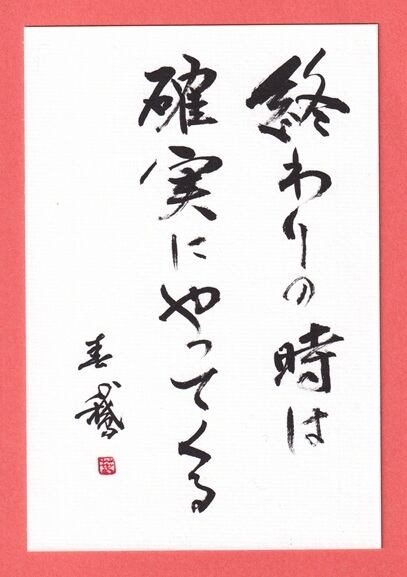 終わりの時は
確実にやってくる
春鵞